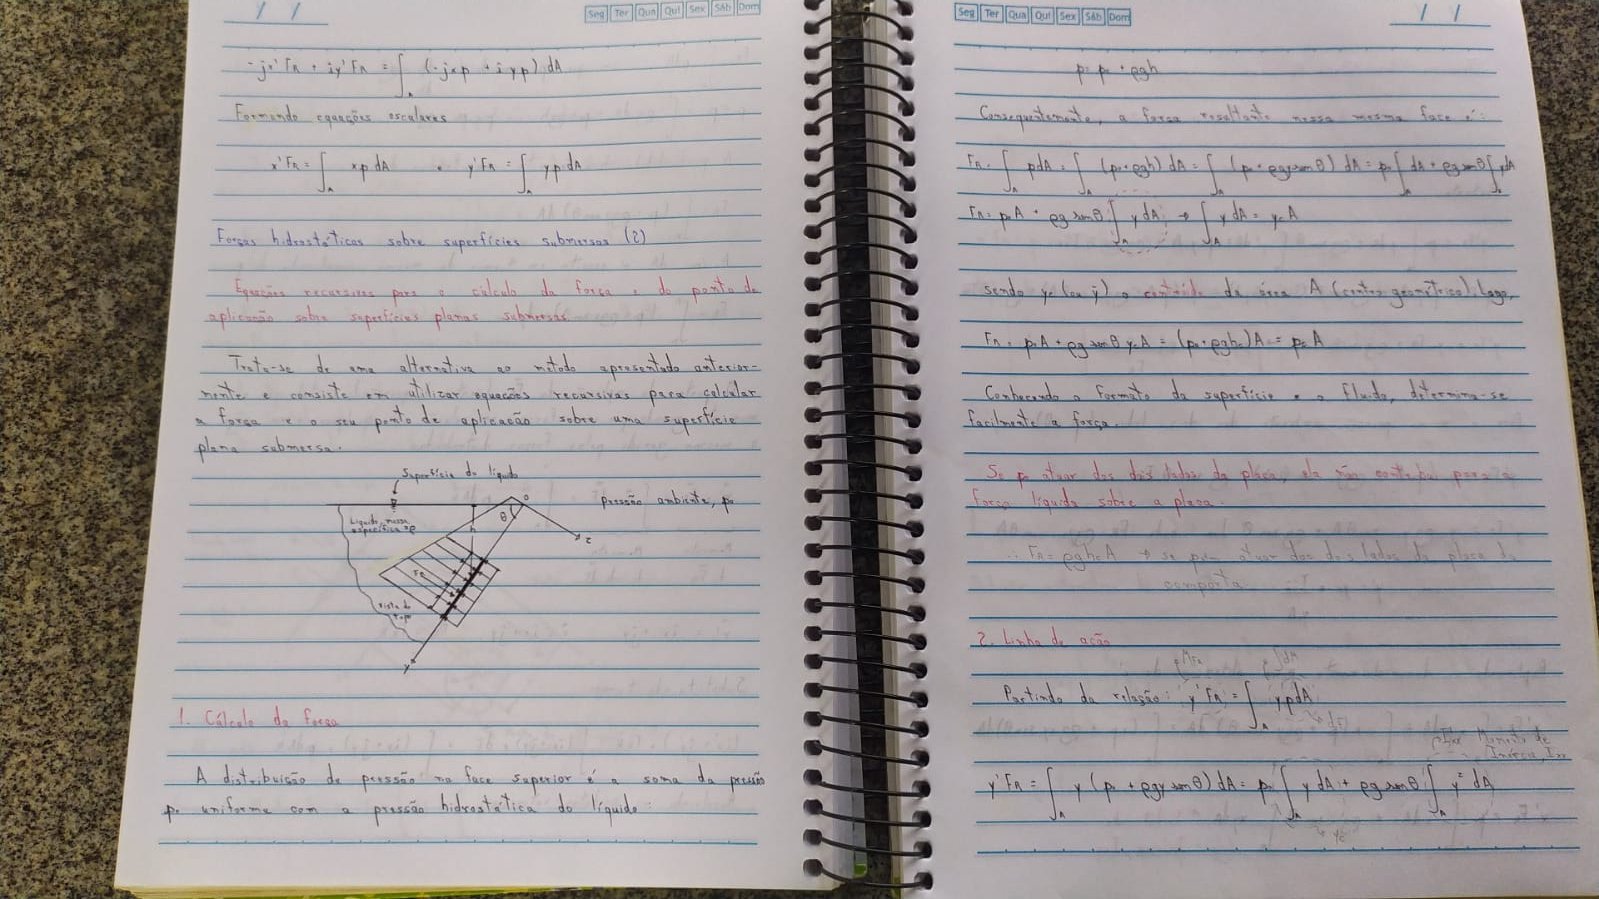 / /
Seg Ter Qua Qui Sex Sáb Dom
-jx'FR + iy'FR = ∫A (-jxp + iyp) dA
Formando equações escalares
x'FR = ∫A xp dA e y'FR = ∫A yp dA
Forças hidrostáticas sobre superfícies submersas (2)
Equações recursivas para o cálculo da força e do ponto de
aplicação sobre superfícies planas submersas.
Trata-se de uma alternativa ao método apresentado anterior-
mente e consiste em utilizar equações recursivas para calcular
a força e o seu ponto de aplicação sobre uma superfície
plana submersa.
Superfície do líquido
Pressão ambiente, p0
Líquido, massa
específica = ρ
θ
o
h
z
FR
vista do
topo
y
1. Cálculo da força
A distribuição de pressão na face superior é a soma da pressão
p0 uniforme com a pressão hidrostática do líquido:
Seg Ter Qua Qui Sex Sáb Dom
/ /
p = p0 + ρgh
Consequentemente, a força resultante nessa mesma face é:
FR = ∫A pdA = ∫A (p0 + ρgh) dA = ∫A (p0 + ρgy sen θ) dA = p0 ∫A dA + ρg sen θ ∫A y dA
FR = p0 A + ρg sen θ ∫A y dA → ∫A y dA = yc A
sendo yc (ou ȳ) o centróide da área A (centro geométrico). Logo,
FR = p0 A + ρg sen θ yc A = (p0 + ρghc) A = pc A
Conhecendo o formato da superfície e o fluido, determina-se
facilmente a força.
Se p0 atuar dos dois lados da placa, ela não contribui para a
força líquida sobre a placa.
∴ FR = ρghc A → se patm atuar dos dois lados da placa da
comporta
2. Linha de ação
MFR
∫dM
Partindo da relação: y'FR = ∫A yp dA
dF
Ixx Momento de
Inércia, Ixx
y'FR = ∫A y (p0 + ρgy sen θ) dA = p0 ∫A y dA + ρg sen θ ∫A y² dA
yc